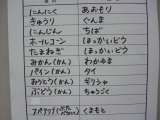 にんにく あおもり
きゅうり ぐんま
にんじん ちば
ホールコーン ほっかいどう
たまねぎ ほっかいどう
みかん(かん) わかやま
パイン(かん) タイ
おうとう(かん) ギリシャ
ぶどう(かん) ちゅうごく
くまもと